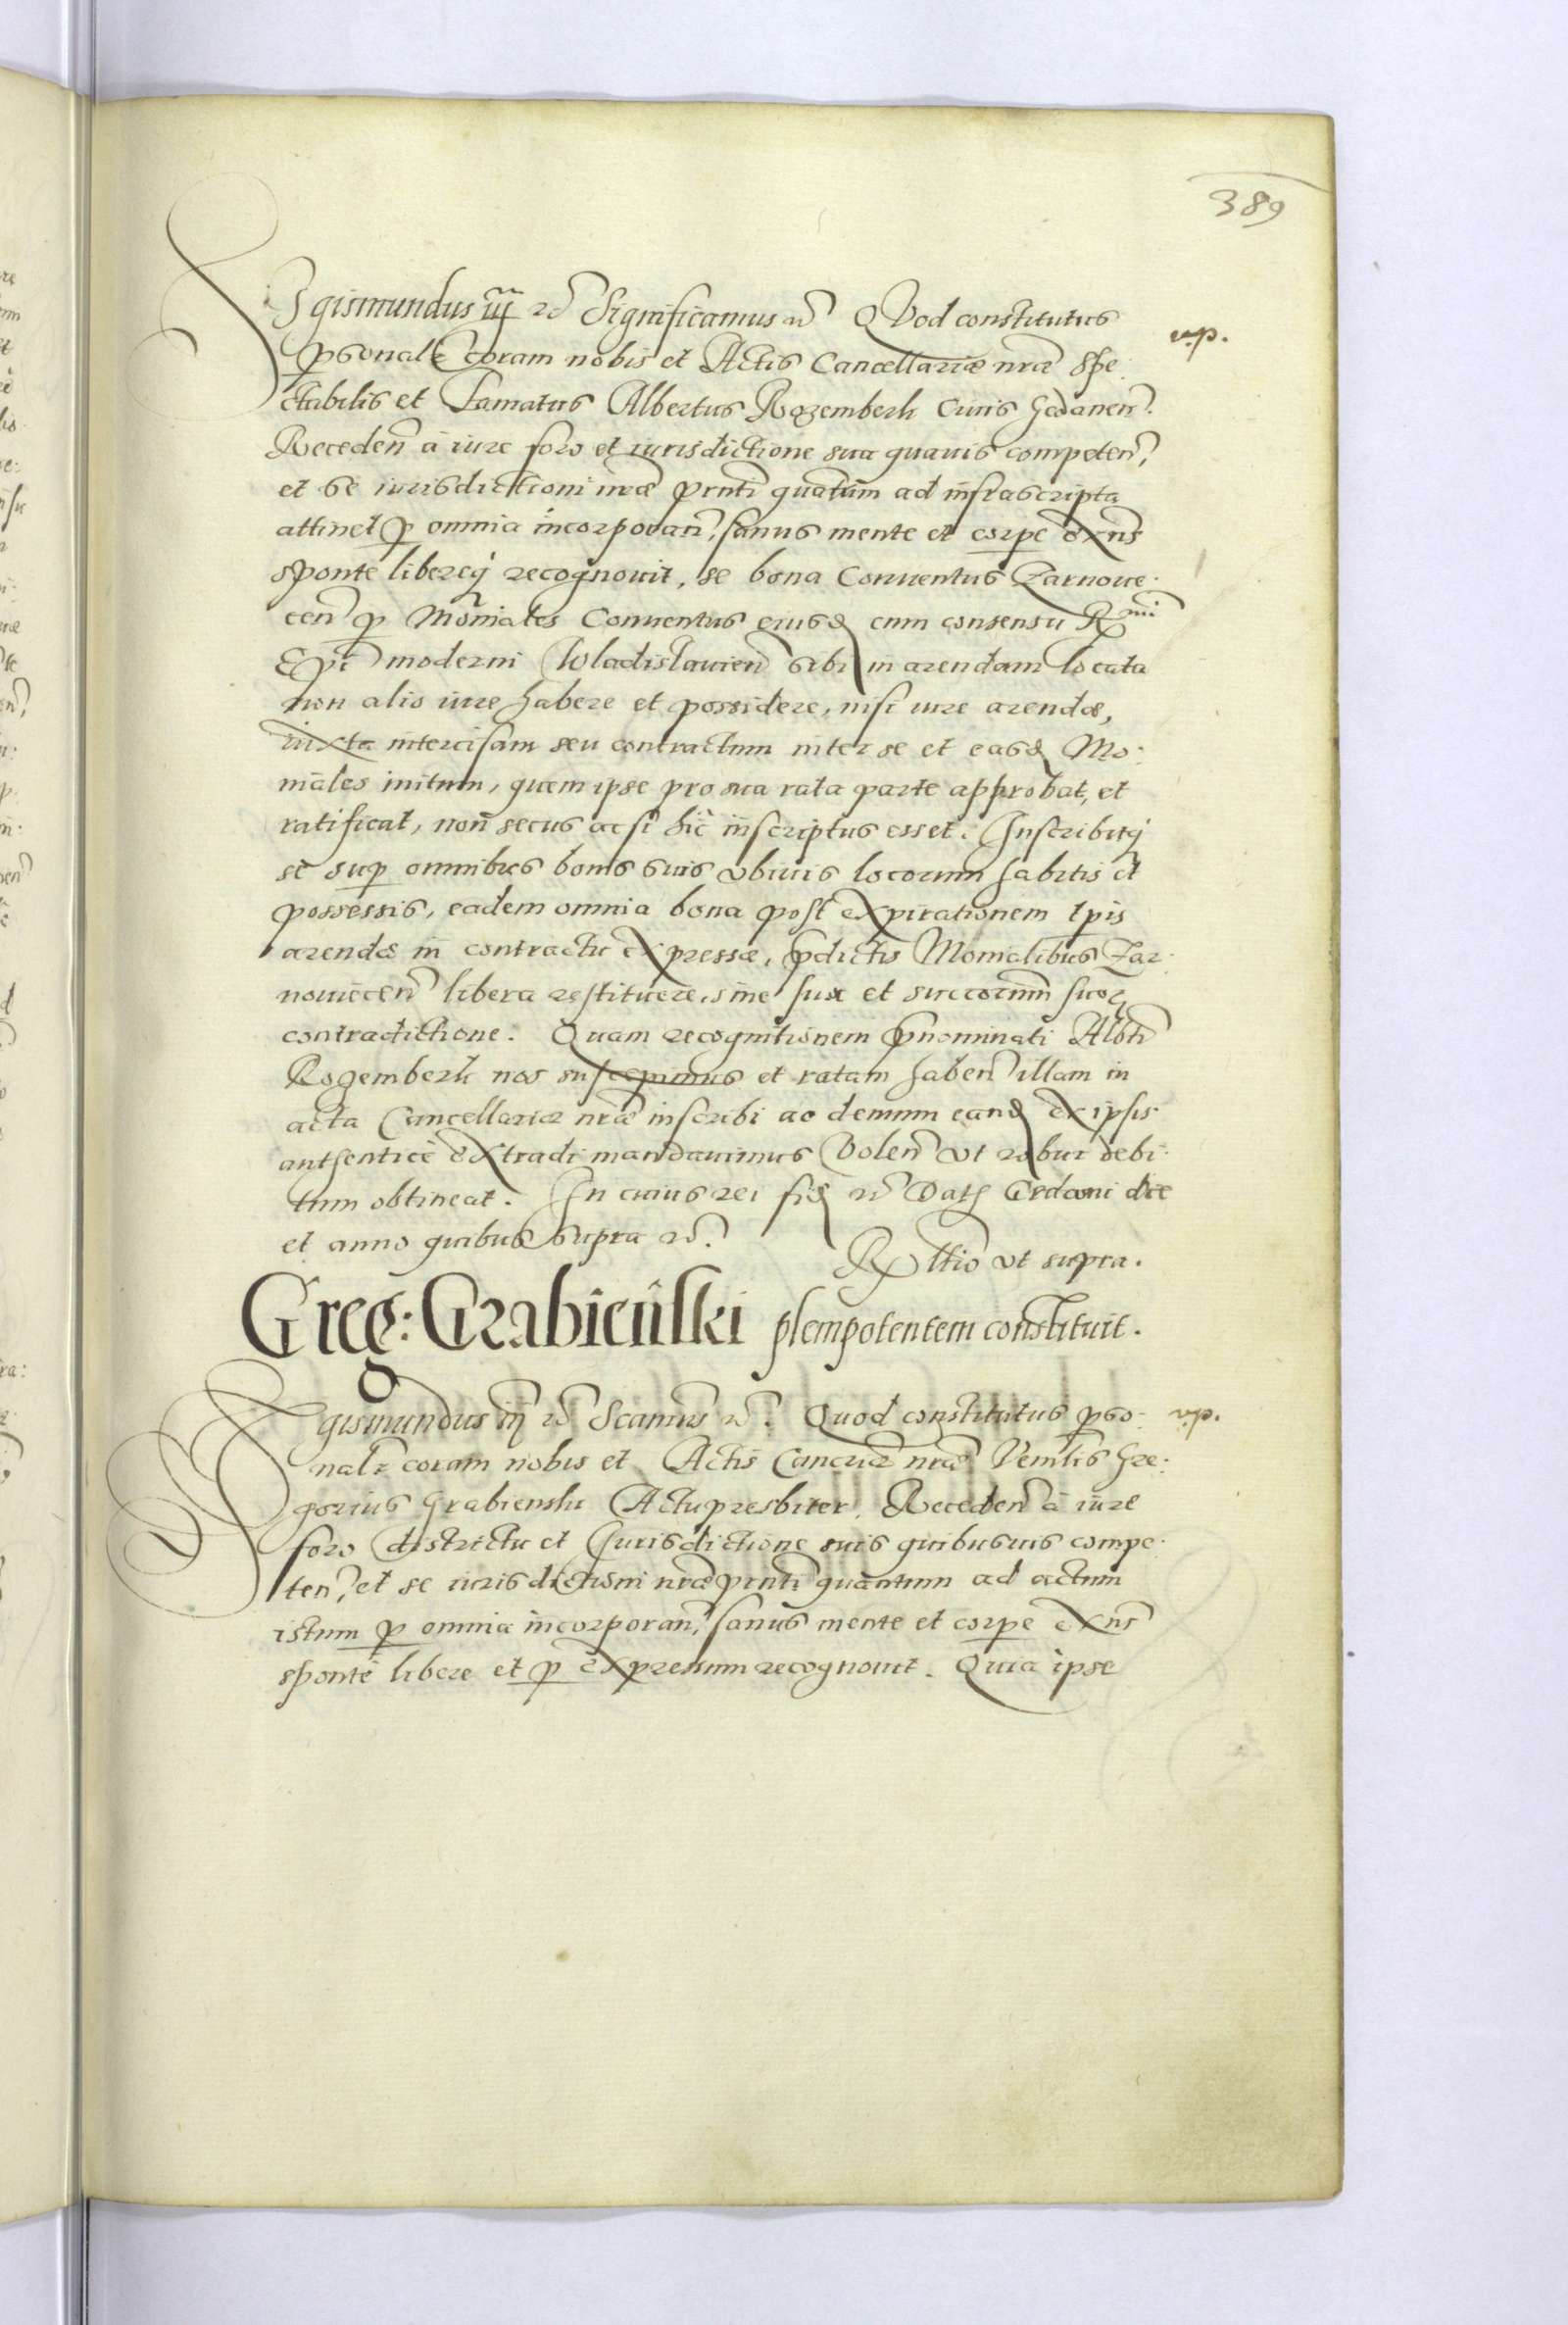 389
Sigismundus iij etc. Significamus etc. QVod constitutus
psonalr coram nobis et Actis Cancellariæ nræ Spe:
ctabilis et Famatus Albertus Rozemberk Ciuis Gedanen.
Receden à iure foro et iurisdictione sua quauis competen,
et se iurisdictioni nræ prnti quantum ad infrascripta
attinet p omnia incorporan, sanus mente et corpe exns
sponte libereq recognouit, se bona Conuentus Zarnoue:
cen p Moniales Conuentus eiusd cum consensu Rmi
Epi moderni Wladislauien sibi in arendam locata
non alio iure habere et possidere, nisi iure arendæ,
iuxta intercisam seu contractum inter se et easd Mo:
niales initum, quem ipse pro sua rata parte approbat, et
ratificat, non secus ac si hic inscriptus esset. Inscribitq
se sup omnibus bonis suis vbiuis locorum habitis et
possessis, eadem omnia bona post expirationem tpis
arendæ in contractu expressæ, pdictis Monialibus Zar:
nouiecen libera restituere, sine sua et succorum suor
contradictione. Quam recognitionem pnominati Albti
Rogemberk nos suscepimus et ratam haben illam in
acta Cancellariæ nræ inscribi ac demum eand ex ipsis
authenticè extradi mandauimus Volen vt robur debi:
tum obtineat. In cuius rei fid etc. Dat Gedani die
et anno quibus supra etc.
Rltio vt supra.
Greg: Grabieński plenipotentem constituit.
Sigismundus iij etc. Scamus etc. Quod constitutus pso:
nalr coram nobis et Actis Cancriæ nræ Venrlis Gre:
gorius Grabienski Actupresbiter. Receden à iure
foro districtu et Jurisdictione suis quibusuis compe:
ten, et se iurisdictioni nræ prnti quantum ad actum
istum p omnia incorporan, sanus mente et corpe exns
sponte libere et p expressum recognouit. Quia ipse
v.p.
v.p.